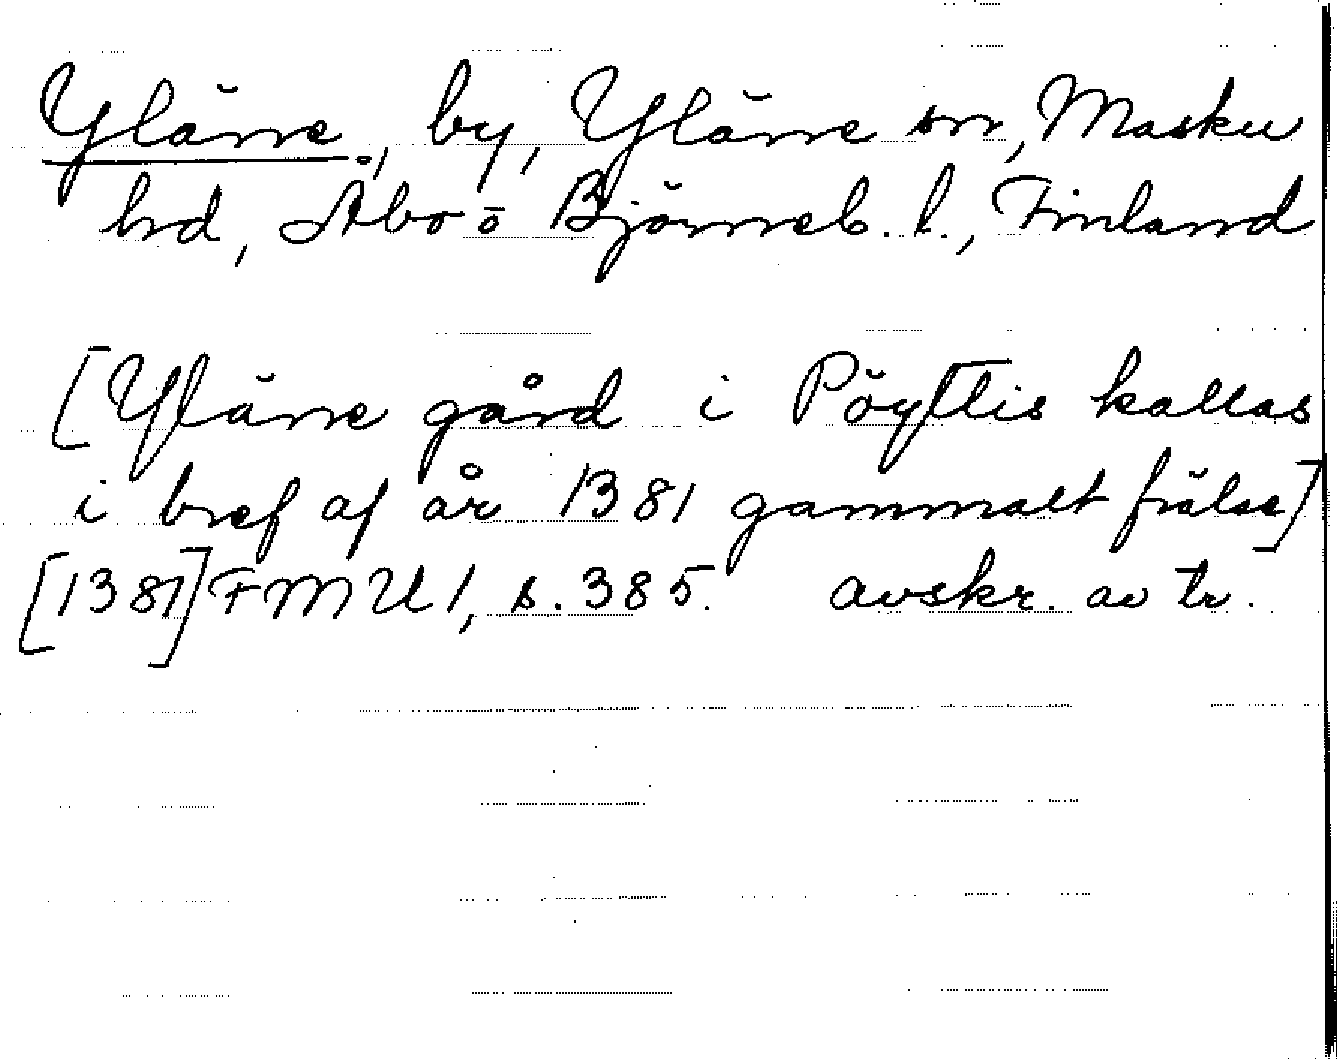 Yläne, by, Yläne sn, Masku
hd, Åbo o Björneb. l., Finland
[Yläne gård i Pöyttis kallas
i bref af år 1381 gammalt frälse]
[1381] FMU 1, s. 385. avskr. av tr.